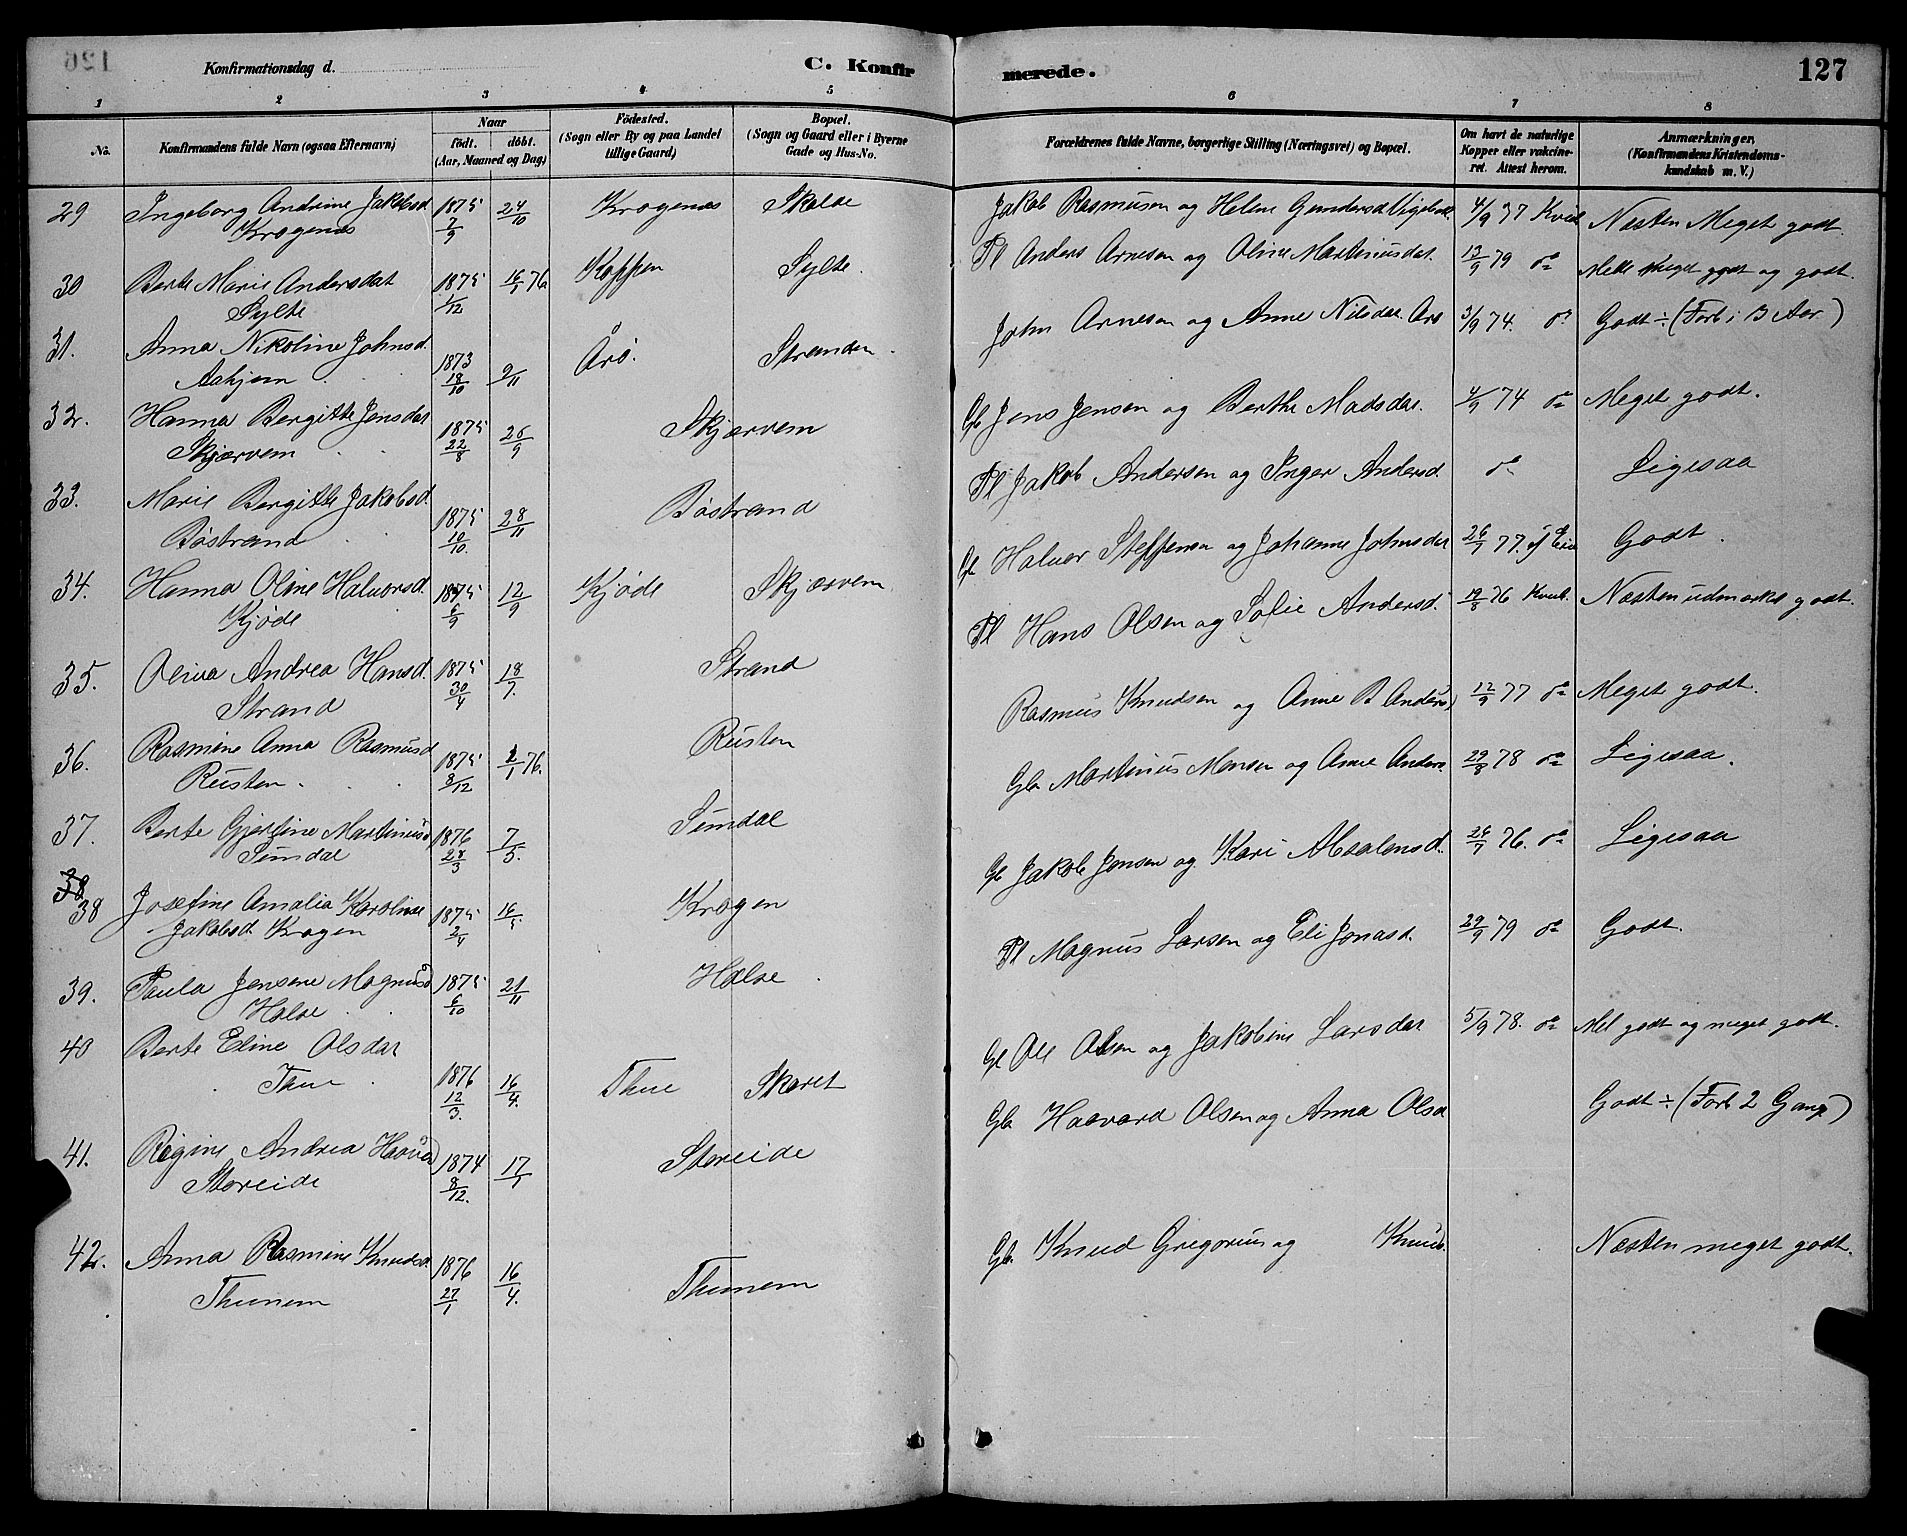 126
Konfirmationsdag d.
C. Konfir
merede.
127
1 2 3 4 5 6 7 8
No.
Konfirmandens fulde Navn (ogsaa Efternavn)
Naar
födt. döbt.
(Aar, Maaned og Dag)
Födested.
(Sogn eller By og paa Landet
tillige Gaard)
Bopæl.
(Sogn og Gaard eller i Byerne
Gade og Hus-No.
Forældrenes fulde Navne, borgerlige Stilling (Næringsvei) og Bopæl.
Om havt de naturlige
Kopper eller vakcine-
ret. Attest herom.
Anmærkninger.
(Konfirmandens Kristendoms-
kundskab m. V.)
29 Ingeborg Andrine Jakobsd. 1875 24/10 Krogenæs Skalde Jakob Rasmusen og Heline Gundersd. 4/9 Næsten Meget godt.
Krogenæs 7/9
30 Berte Marie Andersdat 1875 16/1 76 Koppen Sylte. Pl Anders Arnesen og Oline Martinusdat. 13/9 79 do Melle Meget godt og godt.
Sylte 1/12
31. Anna Nikoline Johnsd. 1873 2/11 Årö. Stranden. John Arnesen og Anne Nilsdat. Arö 3/9 74. do Godt ÷ (Forb. i 3 Aar)
Aahjem 18/10
32. Hanna Bergitte Jensdat 1875 26/9 Skjærvem Gb Jens Jensen og Berthe Madsdat. 4/9 74 do Meget godt.
Skjærvem 22/8
33. Marie Bergitte Jakobsd. 1875 28/11 Böstrand Pl Jakob Andersen og Inger Andersd. do Ligesaa
Böstrand 10/10
34. Hanna Oline Halvorsd. 1875 12/9 Kjöde Skjærvem Gb Halvor Steffensen og Johanne Johnsdat 26/7 77. Godt.
Kjöde 6/9
35. Oliva Andrea Hansd. 1875 18/7. Strand Pl Hans Olsen og Sofie Andersd. 19/8 76 Næsten udmærket godt.
Strand 30/4
36. Rasmine Anna Rasmusd 1875 2/1 76. Rusten Rasmus Knudsen og Anne B. Anders) 12/9 77 do Meget godt.
Rusten. 8/12
37. Berte Gjertine Martinusd 1876 7/5. Sundal Gb. Martinus Monsen og Anne Anders. 29/8 78 do Ligesaa.
Sundal 28/3
38
38 Josefine Amalia Karoline 1875 16/5 Krogen Gb Jakob Jensen og Kari Absalonsd. 26/7 76. do Ligesaa
Jakobsd. Krogen 2/4
39. Paula Jensene Magnusd 1875 21/11 Halse. Pl Magnus Larsen og Eli Jonasd. 29/9 79 do Godt.
Halse 6/10
40 Berte Eline Olsdat 1876 16/4. Thue Skaret Gb Ole Olsen og Jakobine Larsdat 5/9 78. do Mel godt og meget godt.
Thue 12/3.
41. Regine Andrea Haavar) 1874 17/1 Storeide Gb. Haavard Olsen og Anna Olsd Godt ÷ (Forb. 2 Gange)
Storeide 8/12.
42. Anna Rasmine Knudsd. 1876 16/4. Thunem Gb. Knud Gregorius og Knuds. Næsten meget godt.
Thunem 27/1